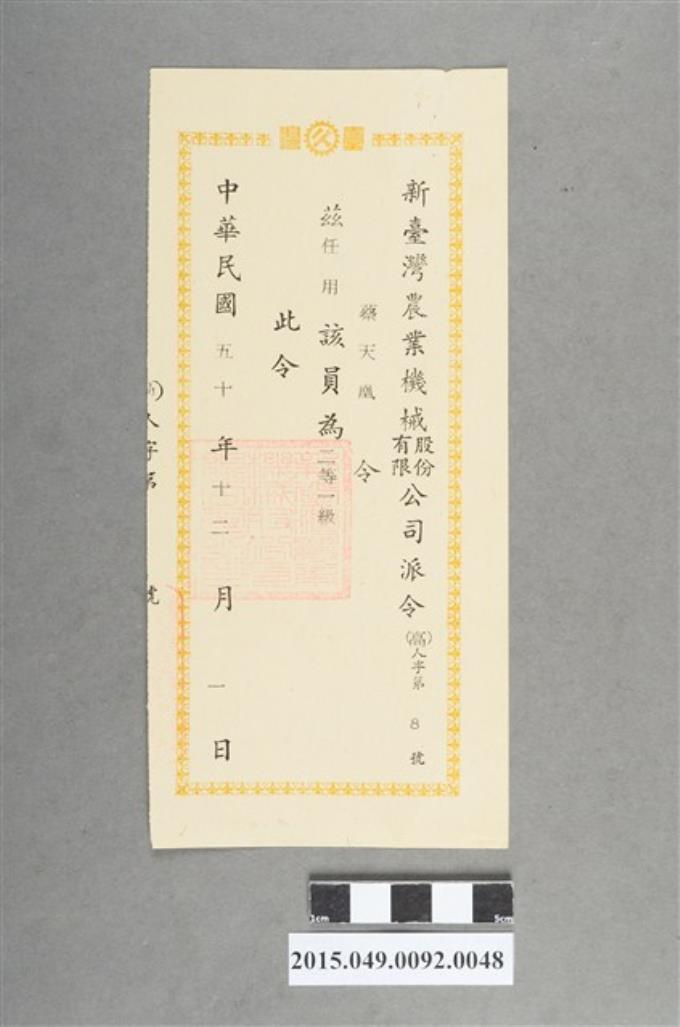 新臺灣農業機械股份有限公司派令(高)人字第8號
蔡天凰 令
茲任用該員為二等一級
此令
中華民國五十年十二月一日
人字第 號
1cm 5cm
2015.049.0092.0048